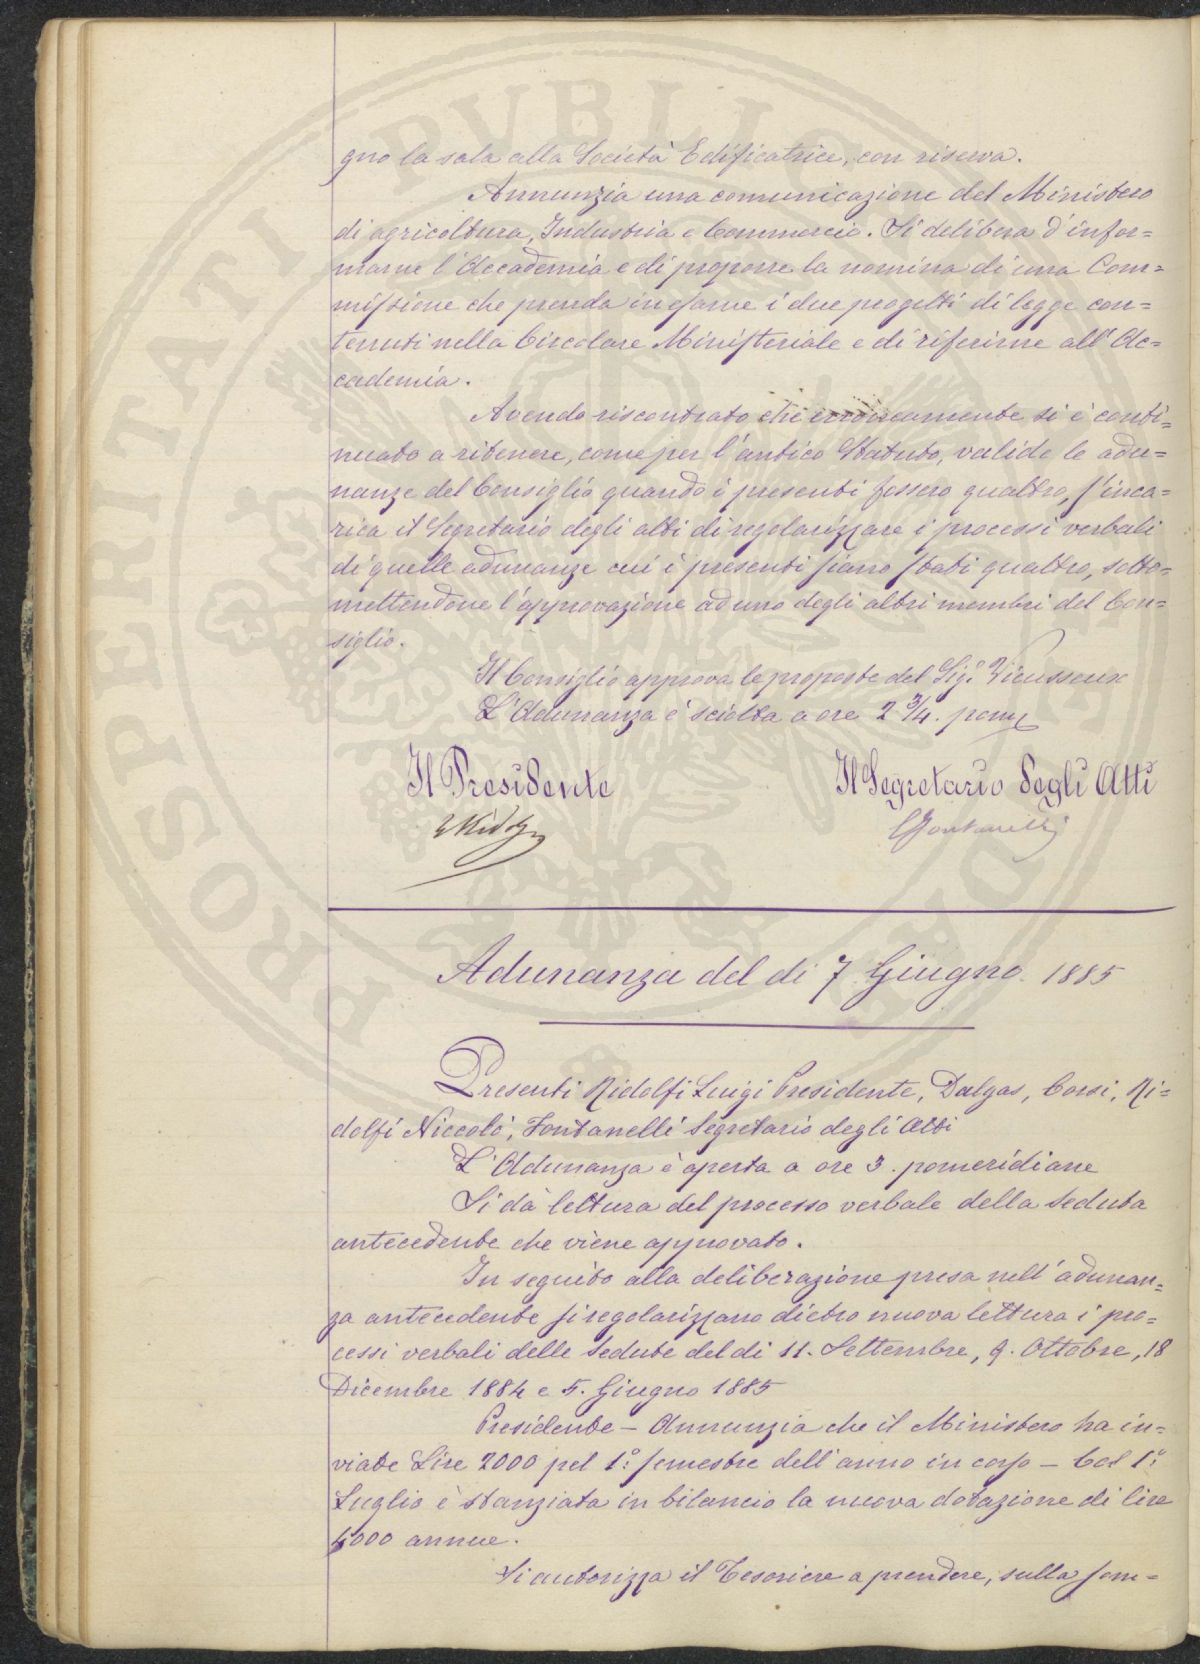 gno la sala alla Società Edificatrice, con riserva.
Annunzia una comunicazione del Ministero
di agricoltura, Industria e Commercio. Si delibera d'infor=
marne l'Accademia e di proporre la nomina di una Com=
missione che prenda in esame i due progetti di legge con=
tenuti nella Circolare Ministeriale e di riferirne all'Ac=
cademia.
Avendo riscontrato che erroneamente si è conti=
nuato a ritenere, come per l'antico Statuto, valide le adu=
nanze del Consiglio quando i presenti fossero quattro, s'inca=
rica il Segretario degli atti di regolarizzare i processi verbali
di quelle adunanze cui i presenti siano stati quattro, sotto=
mettendone l'approvazione ad uno degli altri membri del Con=
siglio.
Il Consiglio approva le proposte del Sig.r Vieusseux
L'Adunanza è sciolta a ore 2 3/4. pom
Il Presidente
Il Segretario degli Atti
LRidolfi
CFontanelli
Adunanza del di 7 Giugno 1885
Presenti Ridolfi Luigi Presidente, Dalgas, Corsi, Ri=
dolfi Niccolò, Fontanelli Segretario degli Atti
L'Adunanza è aperta a ore 3. pomeridiane
Si dà lettura del processo verbale della Seduta
antecedente che viene approvato.
In seguito alla deliberazione presa nell'adunan=
za antecedente si regolarizzano dietro nuova lettura i pro=
cessi verbali delle Sedute del di 11. Settembre, 9. Ottobre, 18
Dicembre 1884 e 5. Giugno 1885
Presidente - Annunzia che il Ministero ha in=
viate Lire 2000 pel 1.° semestre dell'anno in corso - Col 1.°
Luglio è stanziata in bilancio la nuova dotazione di lire
5000 annue.
Si autorizza il Tesoriere a prendere, sulla som=
PROSPERITATI PUBLICAE